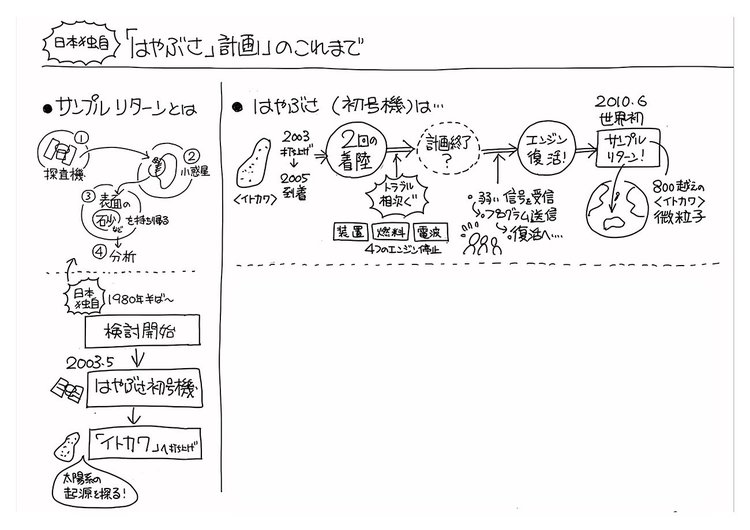 日本独自 「はやぶさ」計画」のこれまで
●サンプルリターンとは
①
探査機
②
小惑星
③ 表面の
石砂など を持ち帰る
④ 分析
日本
独自
1980年半ば〜
検討開始
2003.5
はやぶさ初号機
「イトカワ」へ打ち上げ
太陽系の
起源を探る!
● はやぶさ (初号機)は…
<イトカワ>
2003
打ち上げ
2005
到着
2回の
着陸
トラブル
相次ぐ
装置 燃料 電波
4つのエンジン停止
計画終了
?
弱い信号を受信
プログラム送信
復活へ…
エンジン
復活!
2010.6
世界初
サンプル
リターン!
800越えの
<イトカワ>
微粒子